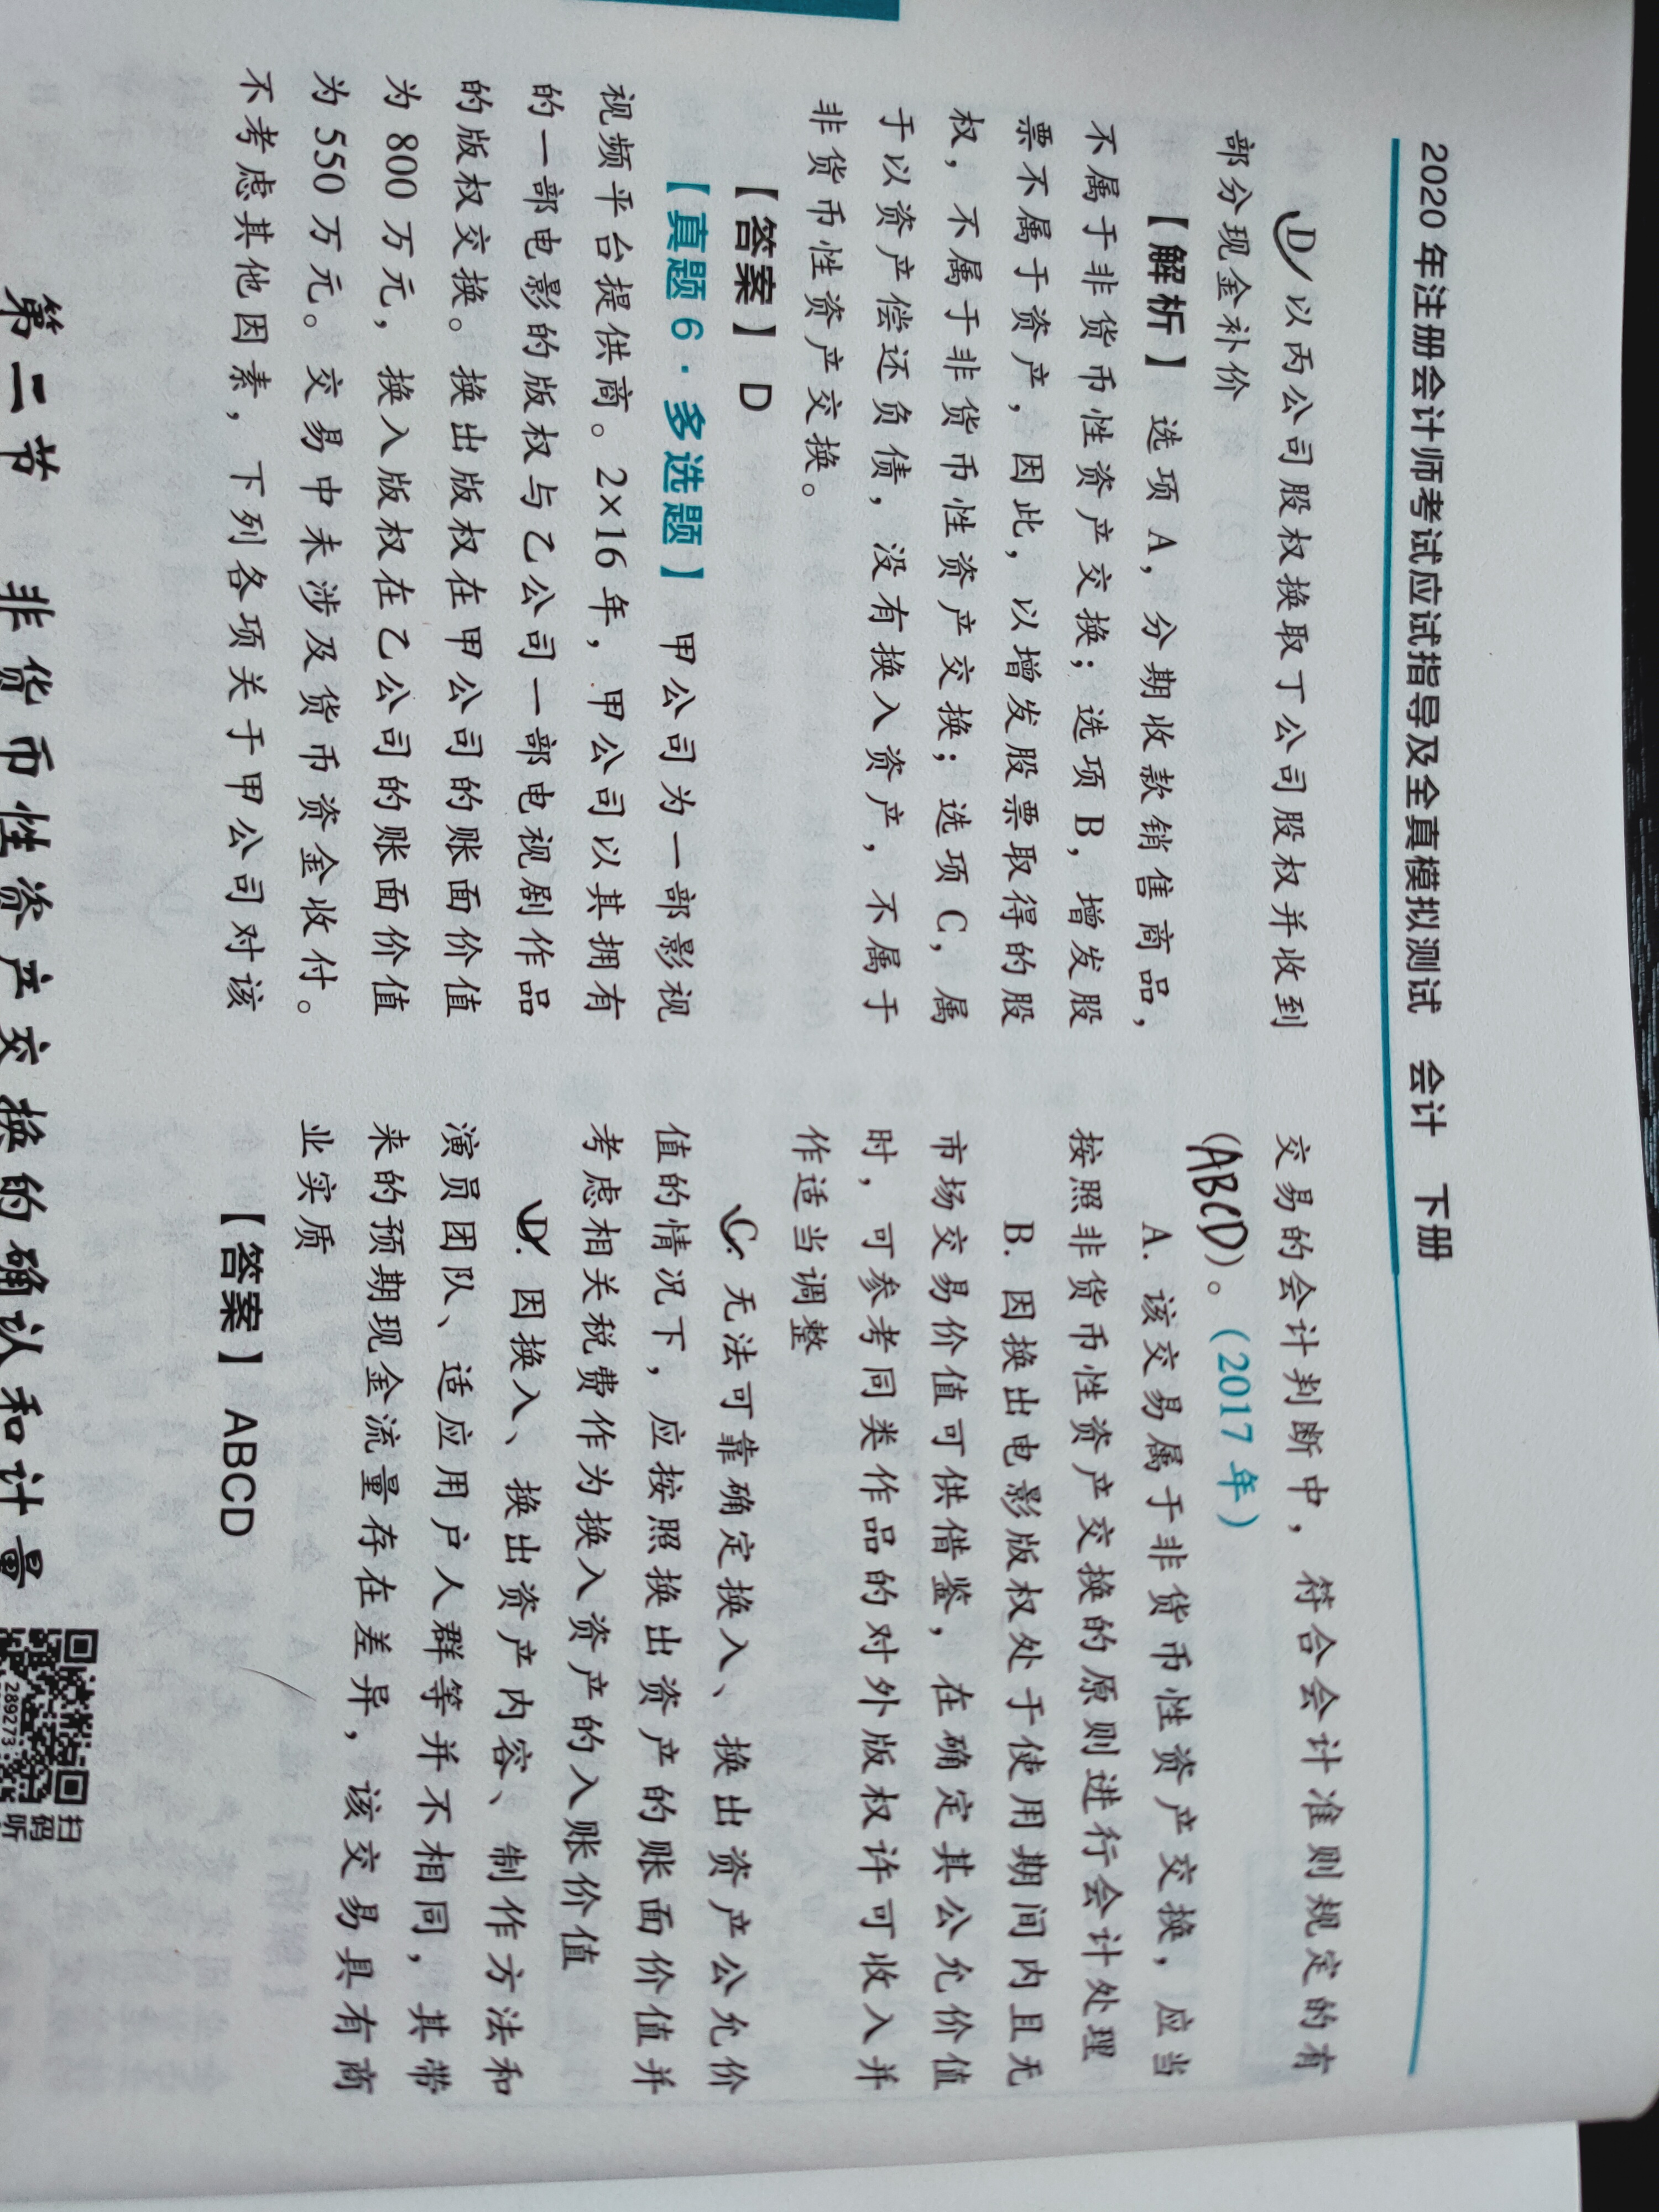 2020年注册会计师考试应试指导及全真模拟测试 会计 下册
D 以丙公司股权换取丁公司股权并收到
部分现金补价
【解析】 选项 A，分期收款销售商品，
不属于非货币性资产交换；选项 B，增发股
票不属于资产，因此，以增发股票取得的股
权，不属于非货币性资产交换；选项 C，属
于以资产偿还负债，没有换入资产，不属于
非货币性资产交换。
【答案】D
【真题 6·多选题】 甲公司为一部影视
视频平台提供商。2×16 年，甲公司以其拥有
的一部电影的版权与乙公司一部电视剧作品
的版权交换。换出版权在甲公司的账面价值
为 800 万元，换入版权在乙公司的账面价值
为 550 万元。交易中未涉及货币资金收付。
不考虑其他因素，下列各项关于甲公司对该
交易的会计判断中，符合会计准则规定的有
(ABCD)。(2017 年)
A. 该交易属于非货币性资产交换，应当
按照非货币性资产交换的原则进行会计处理
B. 因换出电影版权处于使用期间内且无
市场交易价值可供借鉴，在确定其公允价值
时，可参考同类作品的对外版权许可收入并
作适当调整
C. 无法可靠确定换入、换出资产公允价
值的情况下，应按照换出资产的账面价值并
考虑相关税费作为换入资产的入账价值
D. 因换入、换出资产内容、制作方法和
演员团队、适应用户人群等并不相同，其带
来的预期现金流量存在差异，该交易具有商
业实质
【答案】ABCD
第二节 非货币性资产交换的确认和计量
扫
码
听
289273